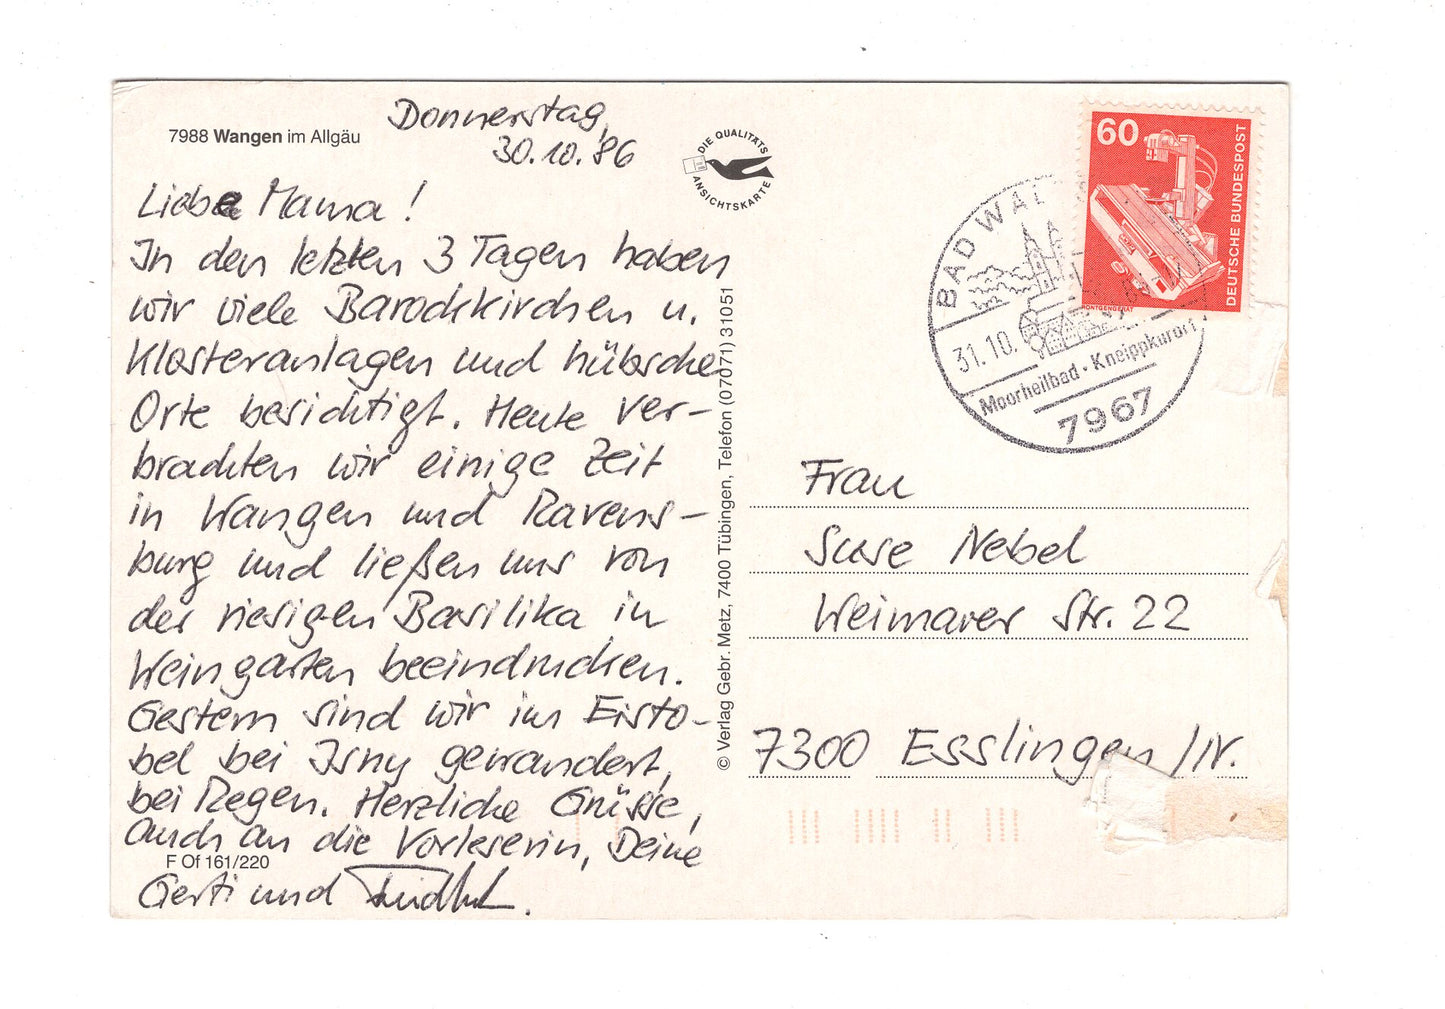 7988 Wangen im Allgäu
Donnerstag,
30.10.86
Liebe Mama!
In den letzten 3 Tagen haben
wir viele Barockkirchen u.
Klosteranlagen und hübsche
Orte besichtigt. Heute ver-
brachten wir einige Zeit
in Wangen und Ravens-
burg und ließen uns von
der riesigen Basilika in
Weingarten beeindrucken.
Gestern sind wir im Eisto-
bel bei Isny gewandert,
bei Regen. Herzliche Grüsse,
auch an die Vorleserin, Deine
F Of 161/220
Gerti und
DIE QUALITÄTS
ANSICHTSKARTE
© Verlag Gebr. Metz, 7400 Tübingen, Telefon (07071) 31051
60
DEUTSCHE BUNDESPOST
RÖNTGENGERÄT
BAD WAL
31.10.
Moorheilbad · Kneippkurort
7967
Frau
Suse Nebel
Weimarer Str. 22
7300 Esslingen/N.